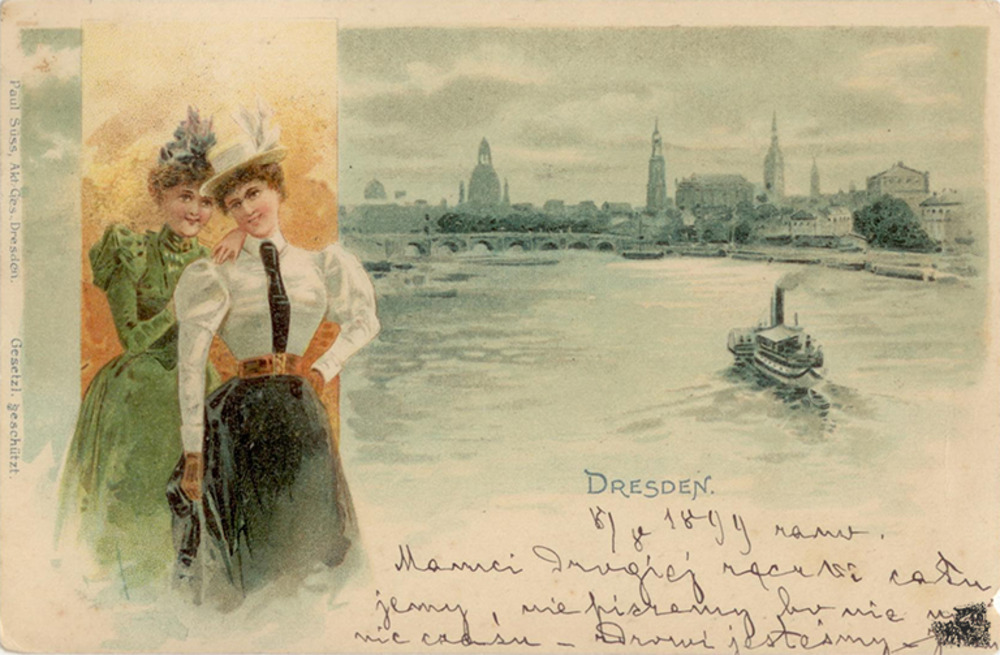 Paul Süss, Akt.Ges. Dresden. Gesetzl. geschützt.
DRESDEN.
1899 rano.
Mamci Drogiej rączki cału
jemy, nie piszemy bo nie
nic czasu – Zdrowi jesteśmy –